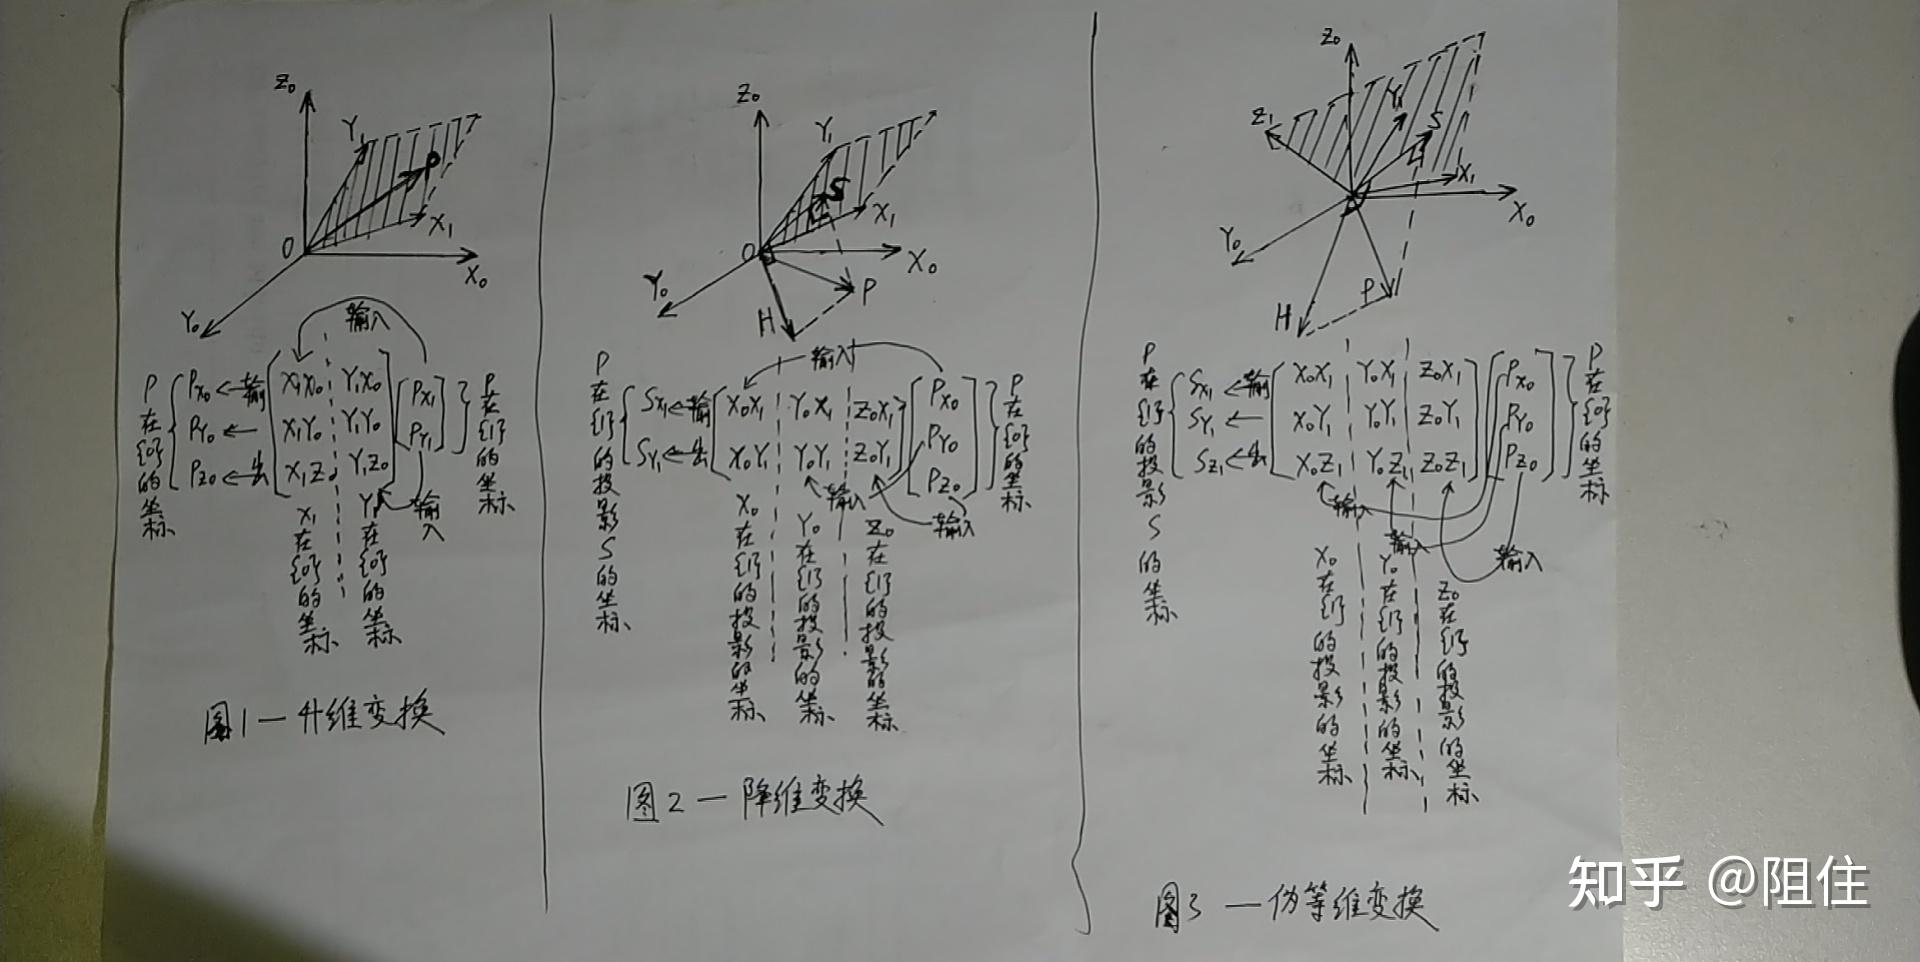 Z₀
Y₁
P
X₁
O
X₀
Y₀
输入
P在{0}的坐标
Px₀ ← 输 X₁X₀ Y₁X₀ Px₁
Py₀ ← X₁Y₀ Y₁Y₀ Py₁
Pz₀ ← 出 X₁Z₀ Y₁Z₀
P在{1}的坐标
输入
X₁在{0}的坐标
Y₁在{0}的坐标
图1—升维变换
Z₀
Y₁
S
X₁
O
X₀
Y₀
P
H
输入
P在{1}的投影S的坐标
Sx₁ ← 输 X₀X₁ Y₀X₁ Z₀X₁ Px₀
Sy₁ ← 出 X₀Y₁ Y₀Y₁ Z₀Y₁ Py₀
Pz₀
P在{0}的坐标
输入
输入
X₀在{1}的投影的坐标
Y₀在{1}的投影的坐标
Z₀在{1}的投影的坐标
图2—降维变换
Z₀
Z₁
Y₁
S
X₁
X₀
Y₀
P
H
P在{1}的投影S的坐标
Sx₁ ← 输 X₀X₁ Y₀X₁ Z₀X₁ Px₀
Sy₁ ← X₀Y₁ Y₀Y₁ Z₀Y₁ Py₀
Sz₁ ← 出 X₀Z₁ Y₀Z₁ Z₀Z₁ Pz₀
P在{0}的坐标
输入
输入
输入
X₀在{1}的投影的坐标
Y₀在{1}的投影的坐标
Z₀在{1}的投影的坐标
图3—伪等维变换
知乎 @阻住